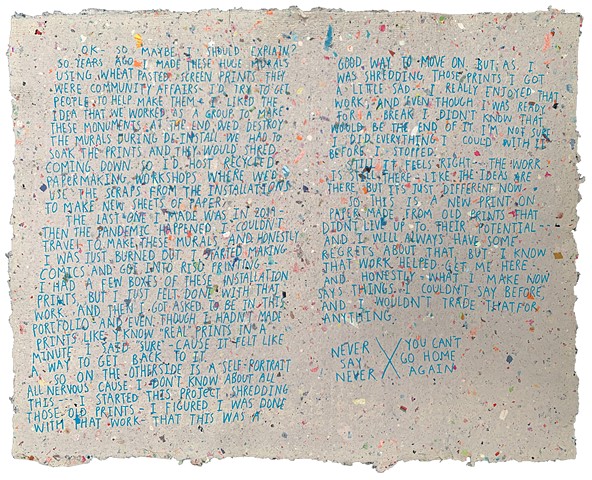 OK - SO MAYBE I SHOULD EXPLAIN?
SO YEARS AGO I MADE THESE HUGE MURALS
USING WHEAT PASTED SCREEN PRINTS THEY
WERE COMMUNITY AFFAIRS - I'D TRY TO GET
PEOPLE TO HELP MAKE THEM - I LIKED THE
IDEA THAT WE WORKED AS A GROUP TO MAKE
THESE MONUMENTS. AT THE END, WE'D DESTROY
THE MURALS DURING DE-INSTALL. WE HAD TO
SOAK THE PRINTS AND THEY WOULD SHRED
COMING DOWN SO I'D HOST RECYCLED
PAPERMAKING WORKSHOPS WHERE WE'D
USE THE SCRAPS FROM THE INSTALLATIONS
TO MAKE NEW SHEETS OF PAPER.
THE LAST ONE I MADE WAS IN 2019
THEN THE PANDEMIC HAPPENED. I COULDN'T
TRAVEL TO MAKE THESE MURALS - AND HONESTLY
I WAS JUST BURNED OUT. I STARTED MAKING
COMICS AND GOT INTO RISO PRINTING -
I HAD A FEW BOXES OF THESE INSTALLATION
PRINTS BUT I JUST FELT DONE WITH THAT
WORK. AND THEN I GOT ASKED TO BE IN THIS
PORTFOLIO AND EVEN THOUGH I HADN'T MADE
PRINTS LIKE Y'KNOW "REAL" PRINTS IN A
MINUTE I SAID SURE - CAUSE IT FELT LIKE
A WAY TO GET BACK TO IT.
SO ON THE OTHERSIDE IS A SELF-PORTRAIT
ALL NERVOUS CAUSE I DON'T KNOW ABOUT ALL
THIS - I STARTED THIS PROJECT SHREDDING
THOSE OLD PRINTS - I FIGURED I WAS DONE
WITH THAT WORK - THAT THIS WAS A
GOOD WAY TO MOVE ON. BUT AS I
WAS SHREDDING THOSE PRINTS I GOT
A LITTLE SAD - I REALLY ENJOYED THAT
WORK. AND EVEN THOUGH I WAS READY
FOR A BREAK I DIDN'T KNOW THAT
WOULD BE THE END OF IT. I'M NOT SURE
I DID EVERYTHING I COULD WITH IT
BEFORE I STOPPED.
STILL IT FEELS RIGHT - THE WORK
IS STILL THERE - LIKE THE IDEAS ARE
THERE BUT IT'S JUST DIFFERENT NOW.
SO THIS IS A NEW PRINT ON
PAPER MADE FROM OLD PRINTS THAT
DIDN'T LIVE UP TO THEIR POTENTIAL --
AND I WILL ALWAYS HAVE SOME
REGRETS ABOUT THAT BUT I KNOW
THAT WORK HELPED GET ME HERE -
AND HONESTLY WHAT I MAKE NOW
SAYS THINGS I COULDN'T SAY BEFORE
AND I WOULDN'T TRADE THAT FOR
ANYTHING.
NEVER
SAY
NEVER
YOU CAN'T
GO HOME
AGAIN